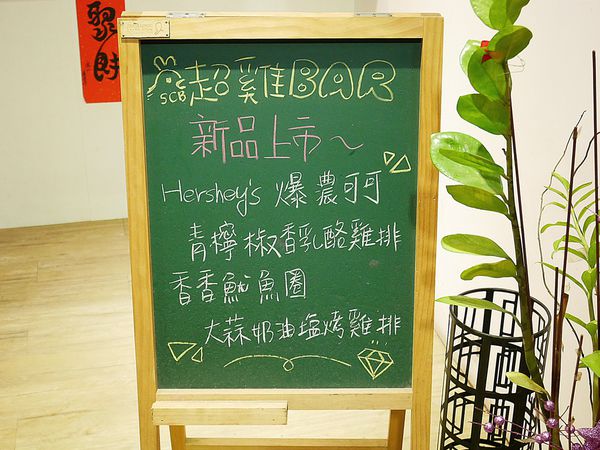 超雞BAR
SCB
新品上市~
Hershey's 爆濃可可
青檸椒香乳酪雞排
香香魷魚圈
大蒜奶油塩烤雞排